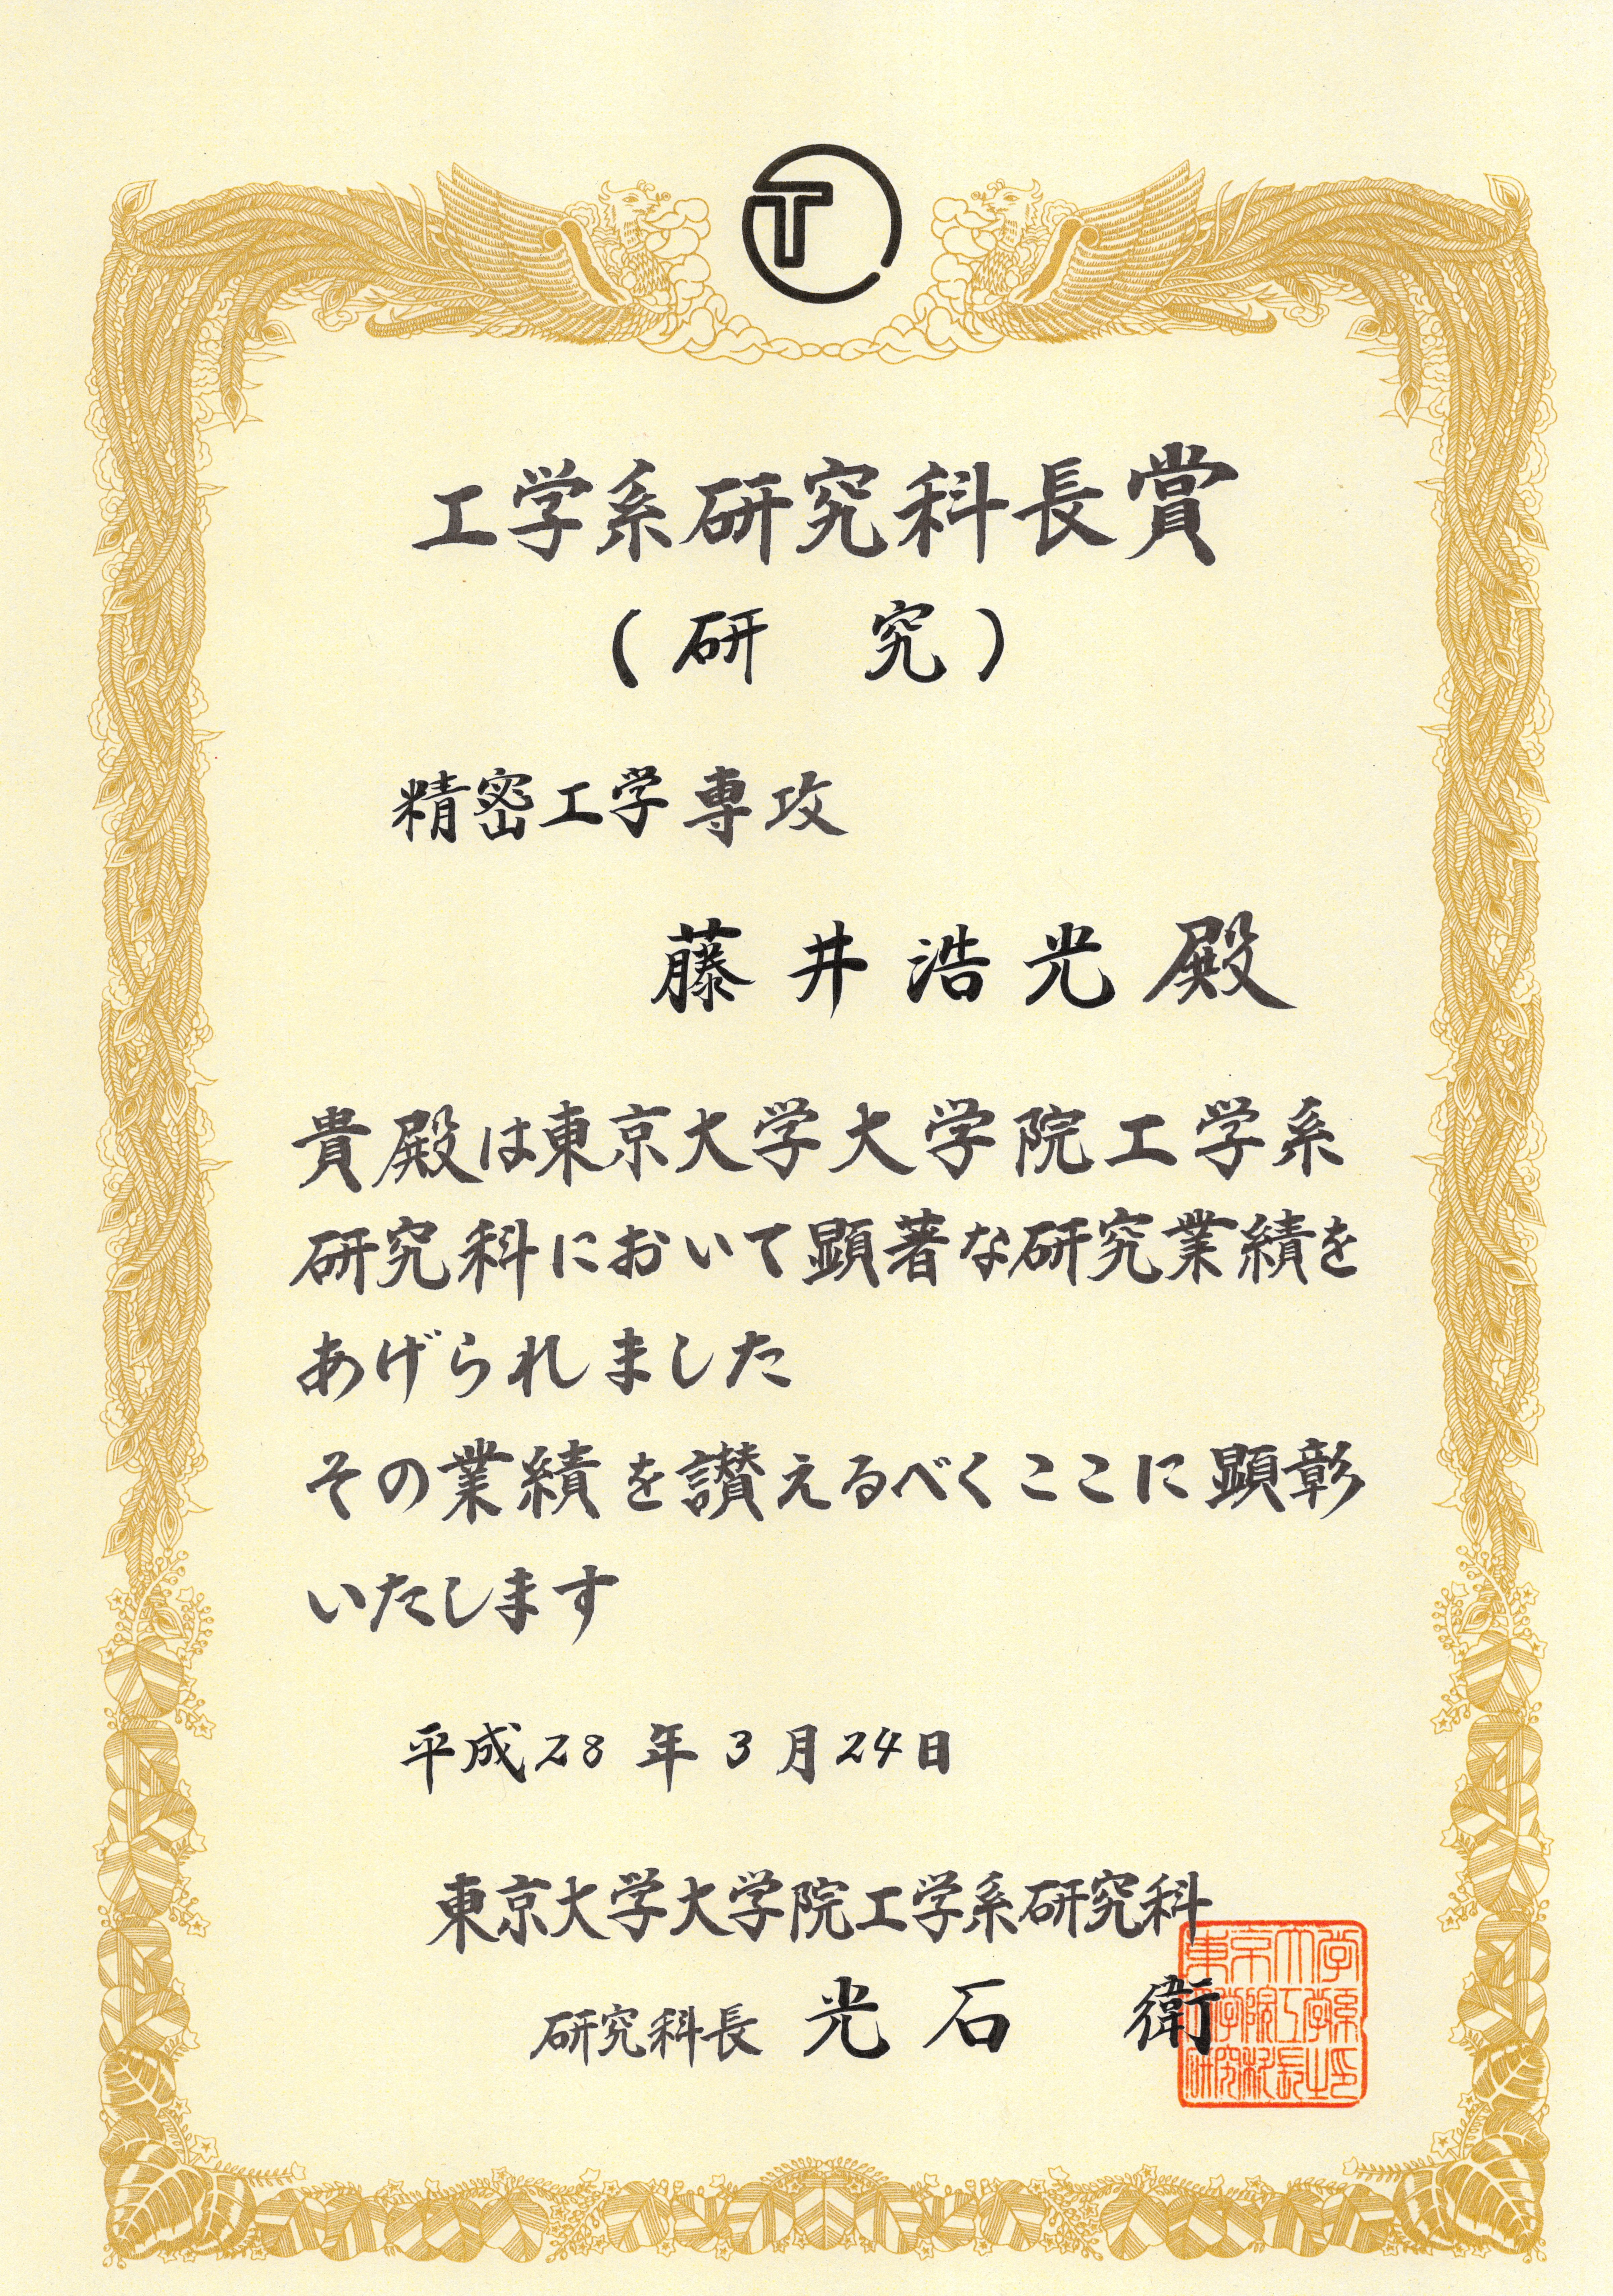 T
工学系研究科長賞
(研 究)
精密工学専攻
藤井浩光殿
貴殿は東京大学大学院工学系
研究科において顕著な研究業績を
あげられました
その業績を讃えるべくここに顕彰
いたします
平成28年3月24日
東京大学大学院工学系研究科
研究科長 光石 衛
東京大学
大学院工学系
研究科長之印